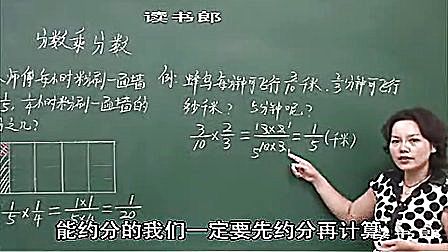 读书郎
分数乘分数
师傅每小时粉刷一面墙
1/5, 1/4小时粉刷一面墙的
几分之几?
1/5 × 1/4 = 1×1/5×4 = 1/20
例: 蜂鸟每分钟可飞行 3/10 千米, 2/3 分钟可飞行
多少千米? 5分钟呢?
3/10 × 2/3 = 3×2/10×3 = 1/5 (千米)
能约分的我们一定要先约分再计算